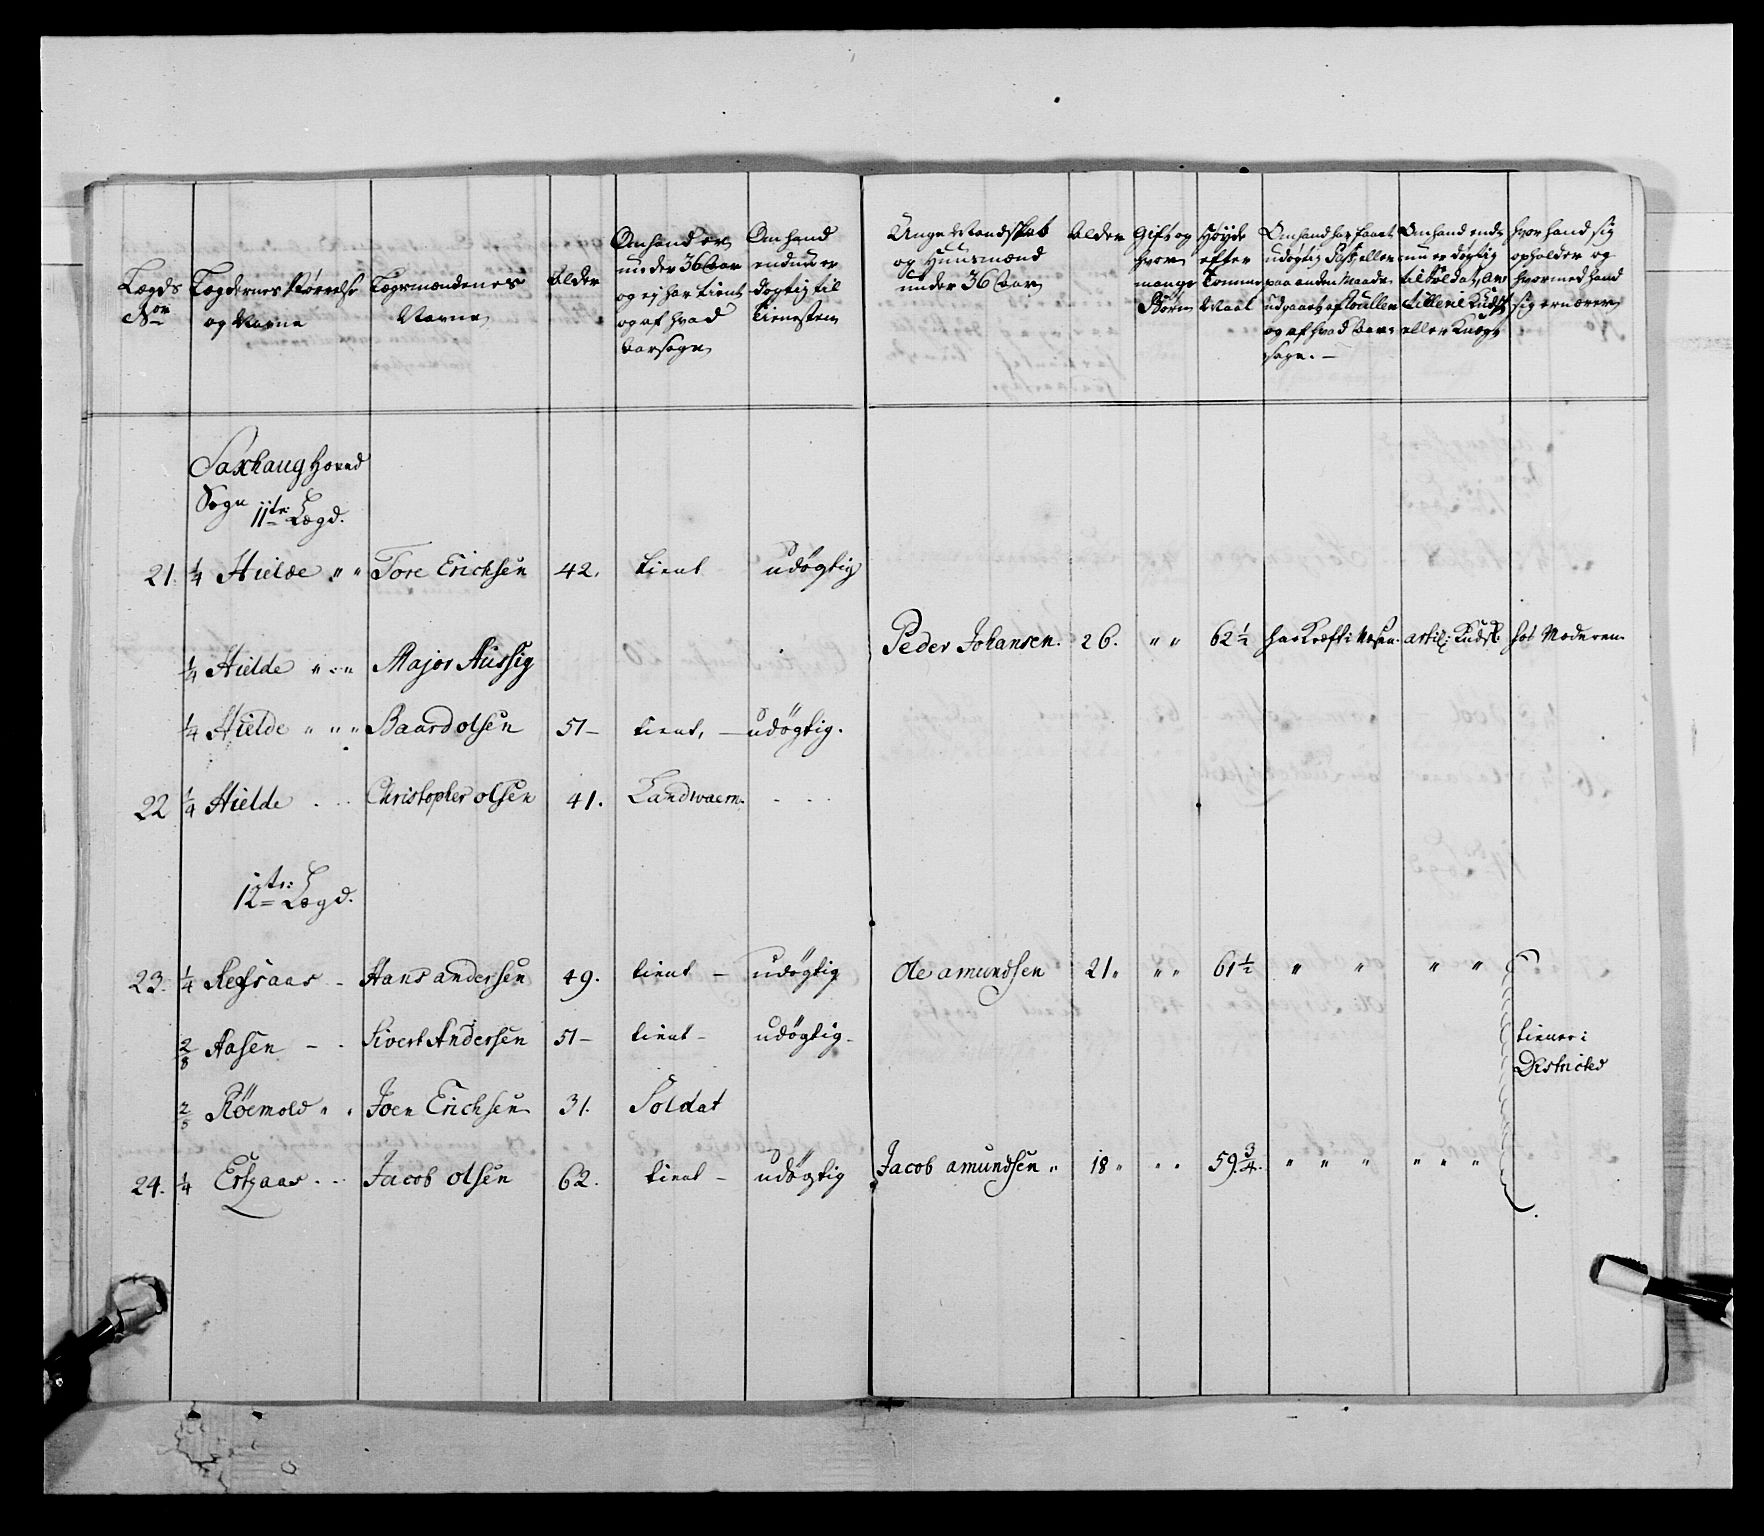 Lægds
No
Lægdernes Størrelse
og Navne
Lægsmændenes
Navne
Alder
Om hand er
under 36 Aar
og ej har tient
og af hvad
Aarsage
Om hand
endnu er
dygtig til
Tienesten
Unge Mandskab
og Huusmænd
under 36 Aar
Alder
Gift og
hvor
mange
Børn
Høyde
efter
Tomme
Maal
Om hand har faaet
udygtig Pass eller
paa anden Maade
udgaaet af Roullen
og af hvad Aar-
sage. —
Om hand end-
nu er døgtig
til Soldat, Ar-
tillerie Kudsk
eller Knægt
hvor hand sig
opholder og
hvormed hand
sig ernærer
Saxhaug Hoved
Sogn
11te Lægd.
21. 1/4 Hielde " " Tore Erichsen 42. tient udøgtig
Peder Johansen. 26. " " 62 1/2 har Kræft i Næsen. artil: Kudsk. hos Moderen
1/4 Hielde " " Major Aussig
1/4 Hielde " " " Baard olsen 51 — tient, — udøgtig.
22 1/4 Hielde Christopher olsen 41. Landwærn.
12te: Lægd.
23. 1/4 Refsaas - Hans andersen 49. tient — udøgtig Ole amundsen 21 " " " 61 1/2 " " " "
2/8 Aasen — - Sivert Andersen 51 — tient — udøgtig -
tiener i
Districted
2/8 Røemold " " Joen Erichsen 31. Soldat
24. 1/4 Ertzaas Jacob olsen 62. tient — udøgtig Jacob amundsen " 18 " " " 59 3/4. " " " " " "